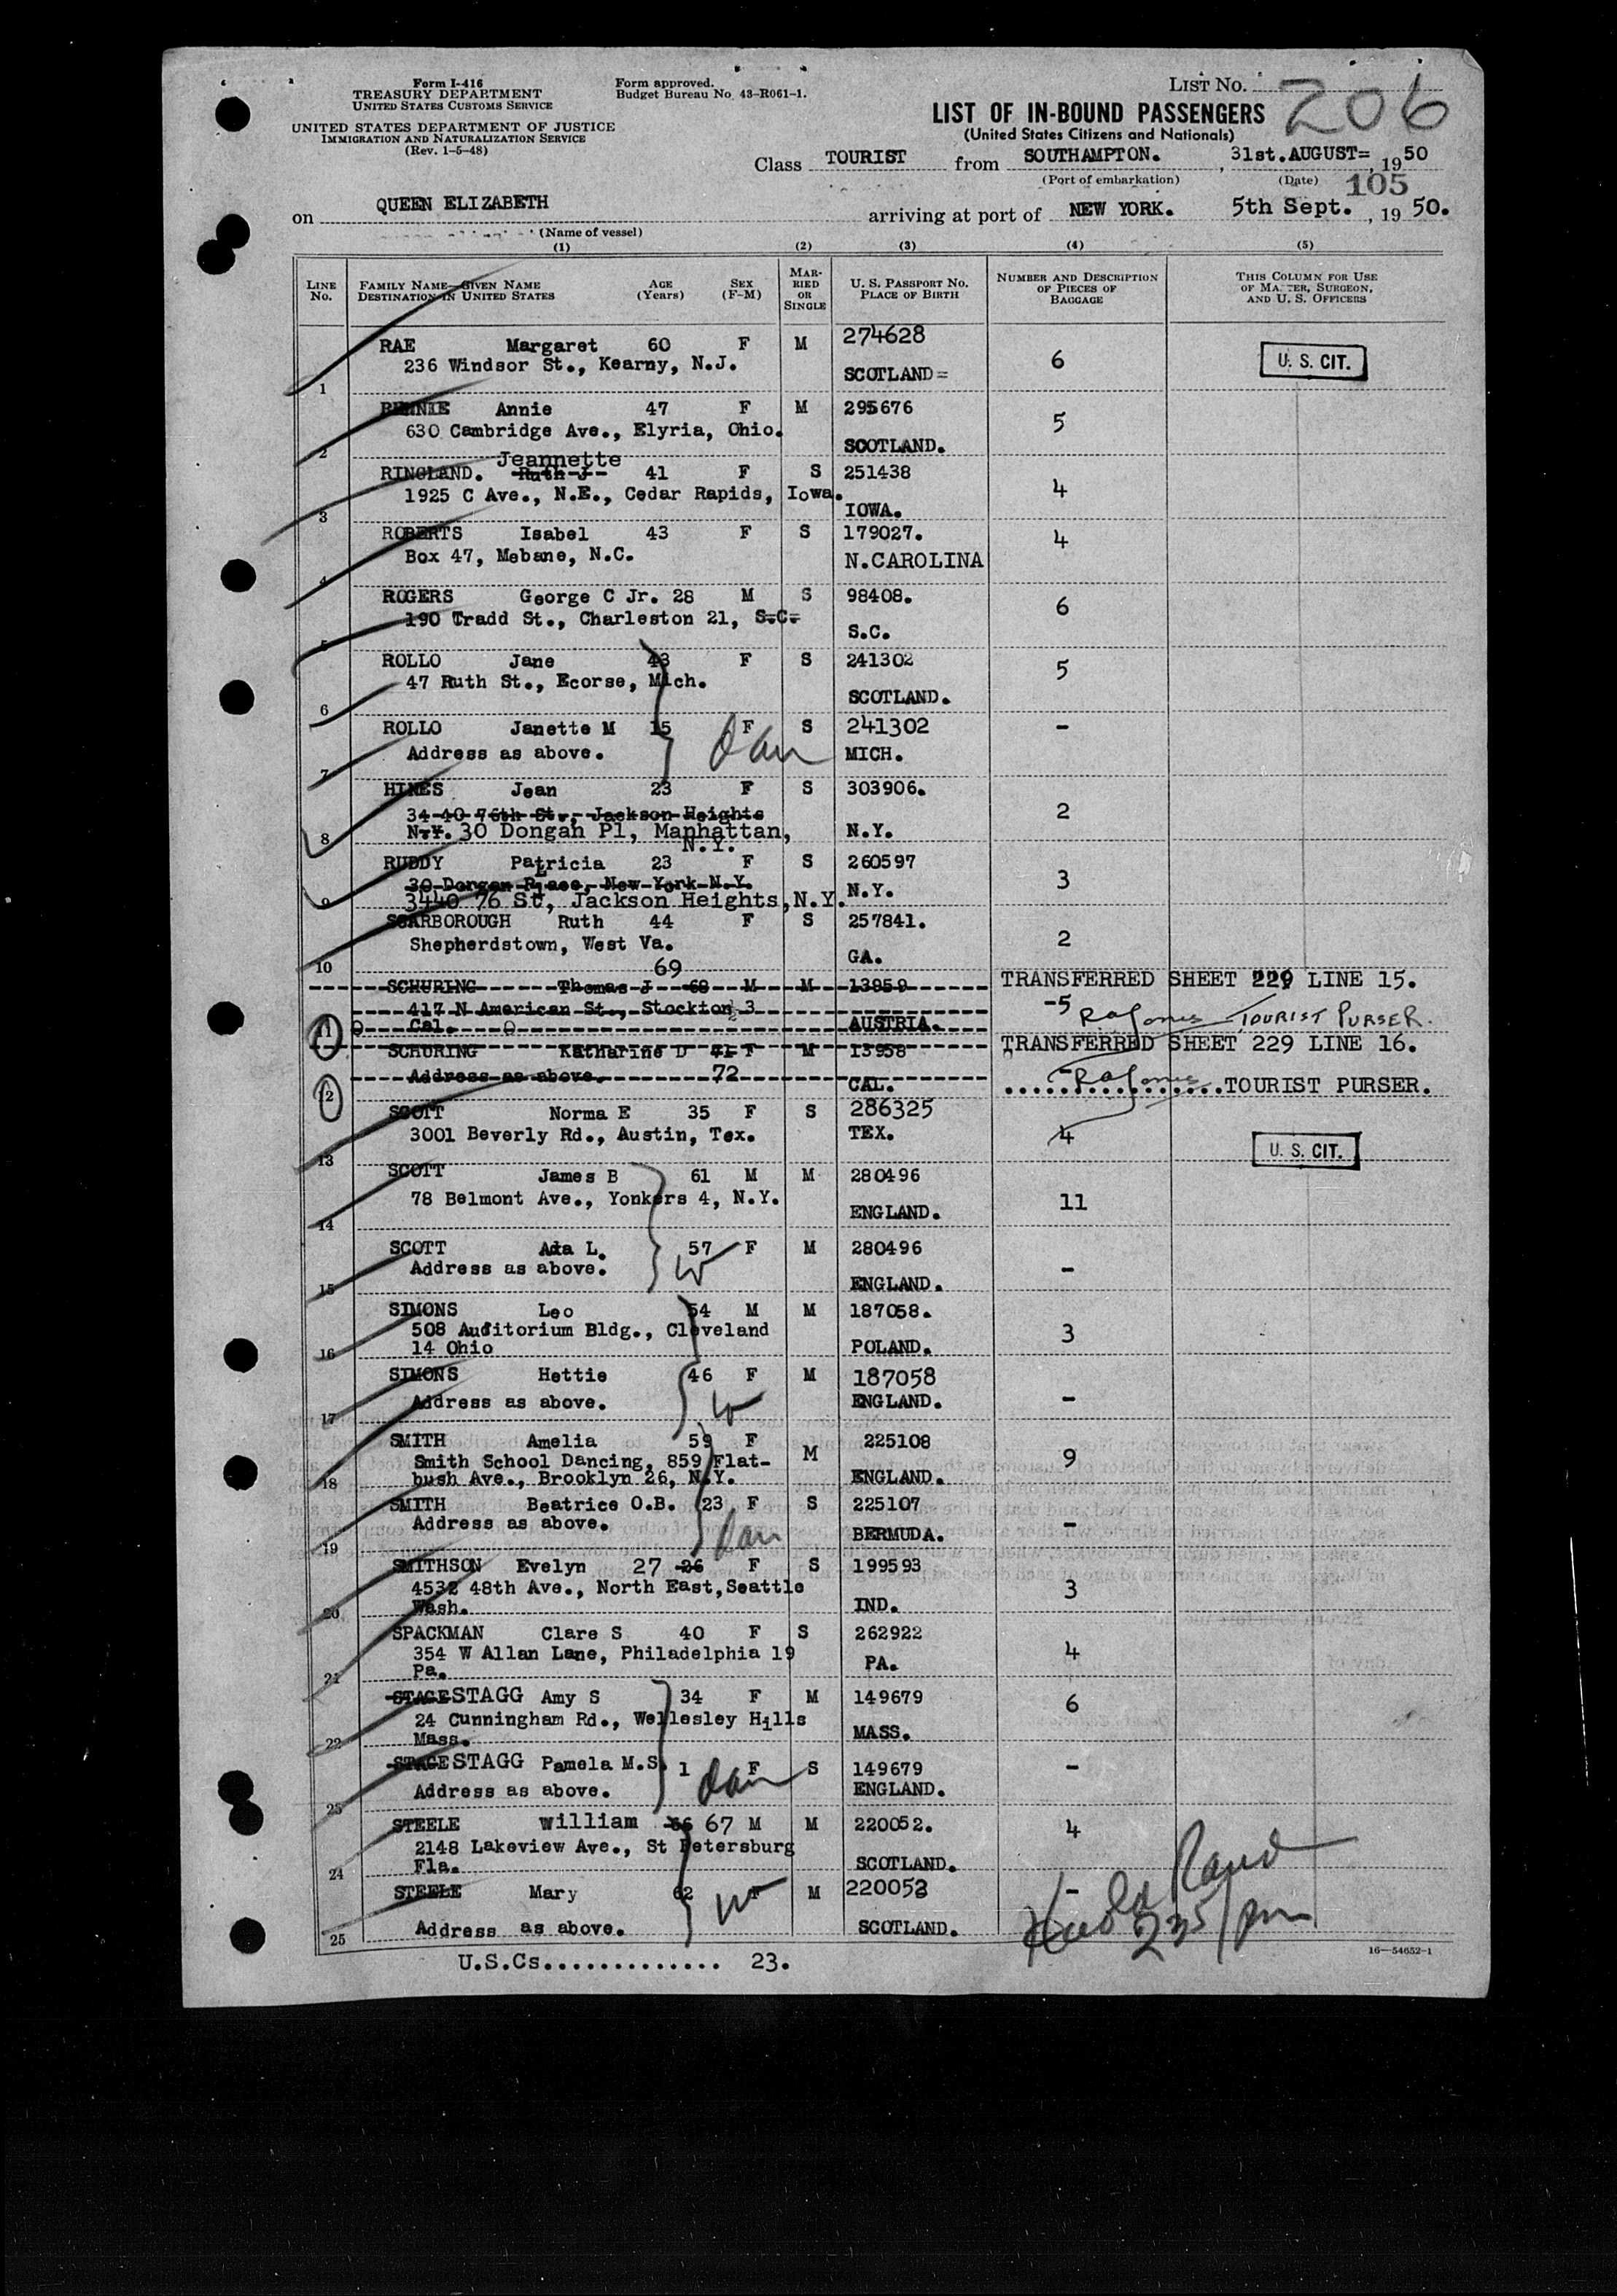 Form I-416
TREASURY DEPARTMENT
UNITED STATES CUSTOMS SERVICE
UNITED STATES DEPARTMENT OF JUSTICE
IMMIGRATION AND NATURALIZATION SERVICE
(Rev. 1-5-48)
Form approved.
Budget Bureau No. 43-R061-1.
LIST NO. 206
LIST OF IN-BOUND PASSENGERS
(United States Citizens and Nationals)
Class TOURIST from SOUTHAMPTON. , 31st.AUGUST= , 1950
(Port of embarkation) (Date) 105
on QUEEN ELIZABETH arriving at port of NEW YORK. 5th Sept. , 19 50.
(Name of vessel)
(1) (2) (3) (4) (5)
LINE NO. FAMILY NAME—GIVEN NAME DESTINATION IN UNITED STATES AGE (Years) SEX (F-M) MARRIED OR SINGLE U. S. PASSPORT NO. PLACE OF BIRTH NUMBER AND DESCRIPTION OF PIECES OF BAGGAGE THIS COLUMN FOR USE OF MASTER, SURGEON, AND U. S. OFFICERS
RAE Margaret 60 F M 274628 6 U. S. CIT.
236 Windsor St., Kearny, N.J.
1 SCOTLAND=
RENNIE Annie 47 F M 295676 5
630 Cambridge Ave., Elyria, Ohio.
2 SCOTLAND.
Jeannette
RINGLAND. Ruth J 41 F S 251438 4
1925 C Ave., N.E., Cedar Rapids, Iowa.
3 IOWA.
ROBERTS Isabel 43 F S 179027. 4
Box 47, Mebane, N.C.
4 N.CAROLINA
ROGERS George C Jr. 28 M S 98408. 6
190 Tradd St., Charleston 21, S.C.
5 S.C.
ROLLO Jane 43 F S 241302 5
47 Ruth St., Ecorse, Mich.
6 SCOTLAND.
ROLLO Janette M 15 F S 241302 -
Address as above. dau MICH.
7
HINES Jean 23 F S 303906. 2
34-40 76th St., Jackson Heights
8 N.Y. 30 Dongan Pl, Manhattan, N.Y. N.Y.
RUDDY Patricia 23 F S 260597 3
30 Dorgan Place, New York N.Y. N.Y.
9 3440 76 St, Jackson Heights,N.Y.
SCARBOROUGH Ruth 44 F S 257841. 2
Shepherdstown, West Va.
10 GA.
69
SCHURING Thomas J 68 M M 13959 TRANSFERRED SHEET 229 LINE 15.
417 N American St., Stockton 3 -5
11 Cal. AUSTRIA. TOURIST PURSER.
SCHURING Katharine D 71 F M 13958 TRANSFERRED SHEET 229 LINE 16.
Address as above. 72
12 CAL. TOURIST PURSER.
SCOTT Norma E 35 F S 286325 4
3001 Beverly Rd., Austin, Tex. TEX. U. S. CIT.
13
SCOTT James B 61 M M 280496 11
78 Belmont Ave., Yonkers 4, N.Y.
14 ENGLAND.
SCOTT Ada L. 57 F M 280496 -
Address as above. W
15 ENGLAND.
SIMONS Leo 54 M M 187058. 3
508 Auditorium Bldg., Cleveland
16 14 Ohio POLAND.
SIMONS Hettie 46 F M 187058 -
Address as above. W ENGLAND.
17
SMITH Amelia 59 F M 225108 9
Smith School Dancing, 859 Flat-
18 bush Ave., Brooklyn 26, N.Y. ENGLAND.
SMITH Beatrice O.B. 23 F S 225107 -
Address as above. dau
19 BERMUDA.
SMITHSON Evelyn 27 26 F S 199593 3
4532 48th Ave., North East,Seattle
20 Wash. IND.
SPACKMAN Clare S 40 F S 262922 4
354 W Allan Lane, Philadelphia 19
21 Pa. PA.
STAGE STAGG Amy S 34 F M 149679 6
24 Cunningham Rd., Wellesley Hills
22 Mass. MASS.
STAGE STAGG Pamela M.S. 1 F S 149679 -
Address as above. dau ENGLAND.
23
STEELE William 66 67 M M 220052. 4
2148 Lakeview Ave., St Petersburg
24 Fla. SCOTLAND.
STEELE Mary 62 F M 220053 -
Address as above. W
25 SCOTLAND.
235 pm
16—54652-1
U.S.Cs.............. 23.